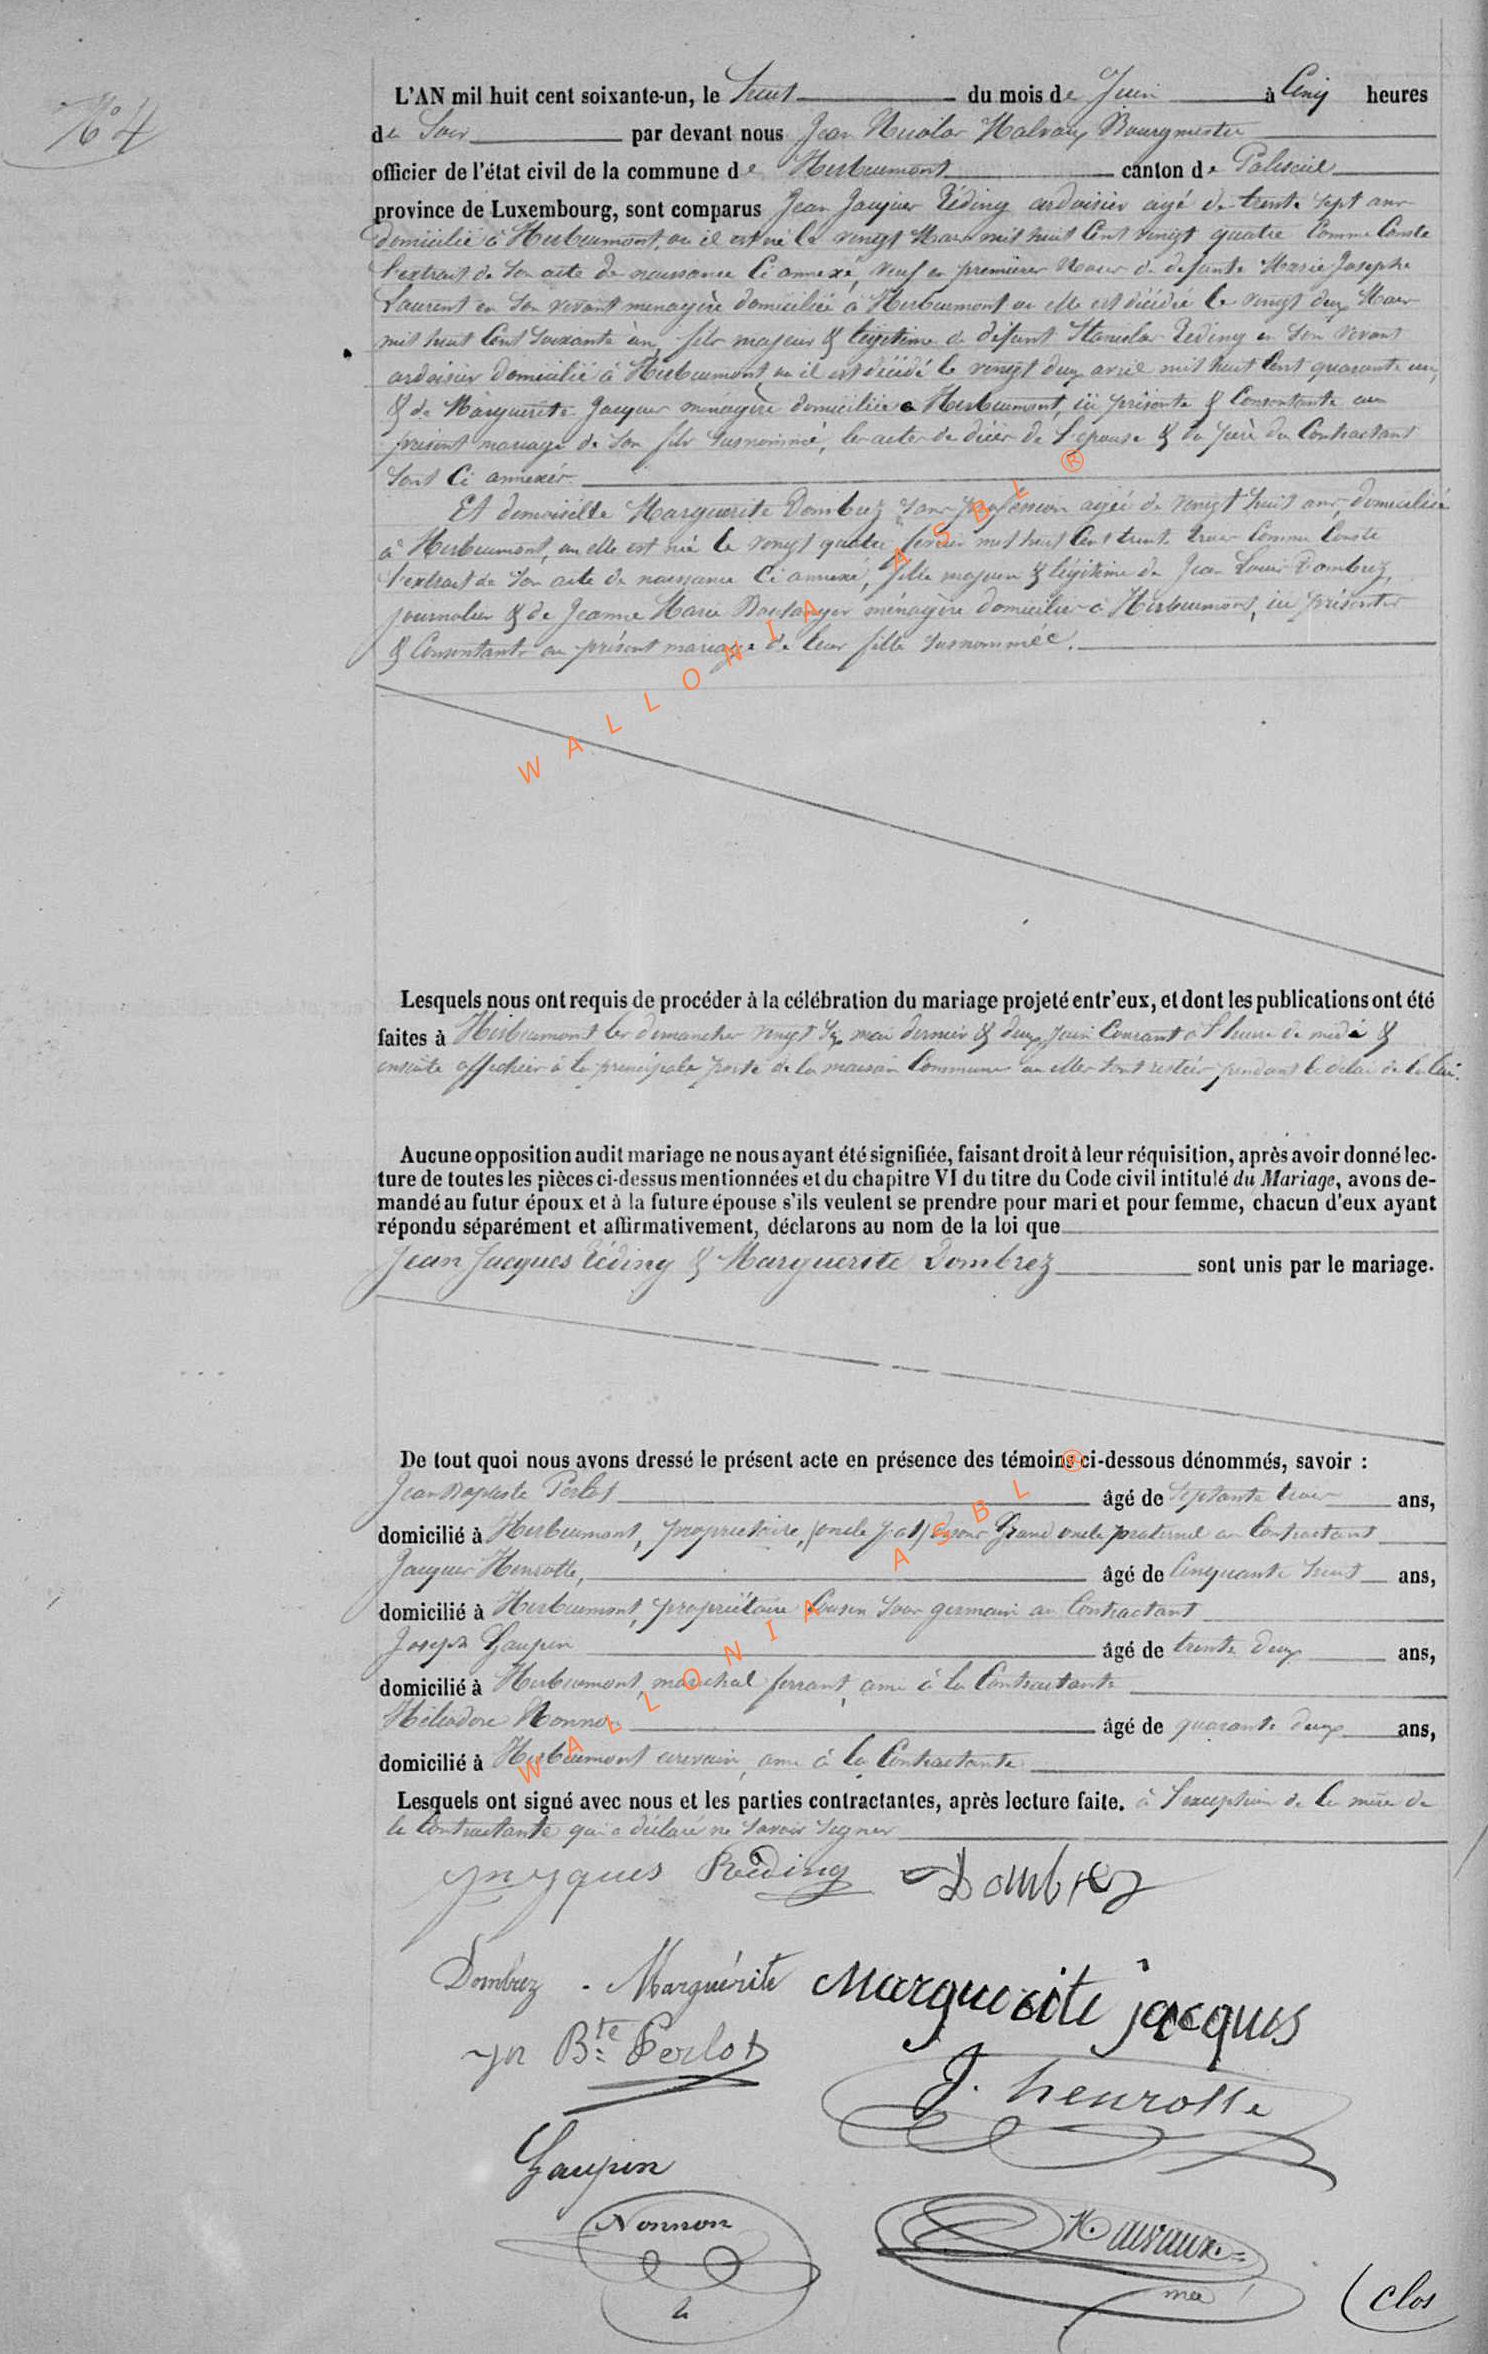 N° 4
L'AN mil huit cent soixante-un, le huit du mois de Juin à Cinq heures
de Soir par devant nous Jean Nicolas Halvaux Bourgmestre
officier de l'état civil de la commune de Herbeumont canton de Paliseul
province de Luxembourg, sont comparus Jean Jacques Réding ardoisier agé de trente sept ans
domicilié à Herbeumont, ou il est né le vingt Mars mil huit Cent vingt quatre Comme Conste
l'extrait de Son acte de naissance Ci annexé, veuf en premières Noces de defunte Marie Josephe
Laurent en Son vivant menagère domiciliée à Herbeumont ou elle est décédée le vingt deux Mars
mil huit Cent Soixante un, fils majeur & légitime de défunt Stanislas Réding en Son vivant
ardoisier domicilié à Herbeumont, ou il est décédé le vingt deux avril mil huit Cent quarante un,
& de Marguerite Jacques ménagère domiciliée a Herbeumont, ici présente & Consentante au
présent mariage de Son fils Susnommé, les actes de décès de l'épouse & du père du Contractant
Sont Ci annexés
Et demoiselle Marguerite Dombrez Sans profession agée de vingt huit ans, domiciliée
à Herbeumont, ou elle est née le vingt quatre fevrier mil huit Cent trente trois Comme Conste
l'extrait de Son acte de naissance Ci annexé, fille majeure & légitime de Jean Louis Dombrez,
journalier & de Jeanne Marie Boulanger ménagère domiciliés à Herbeumont, ici présents
& Consentants au présent mariage de leur fille Susnommée.
WALLONIA ASBL ®
Lesquels nous ont requis de procéder à la célébration du mariage projeté entr'eux, et dont les publications ont été
faites à Herbeumont les dimanches vingt Six mai dernier & deux Juin Courant à l'heure de midi &
ensuite affichées à la principale porte de la maison Commune ou elles Sont restées pendant le délai de la Loi.
Aucune opposition audit mariage ne nous ayant été signifiée, faisant droit à leur réquisition, après avoir donné lec-
ture de toutes les pièces ci-dessus mentionnées et du chapitre VI du titre du Code civil intitulé du Mariage, avons de-
mandé au futur époux et à la future épouse s'ils veulent se prendre pour mari et pour femme, chacun d'eux ayant
répondu séparément et affirmativement, déclarons au nom de la loi que
Jean Jacques Réding & Marguerite Dombrez sont unis par le mariage.
De tout quoi nous avons dressé le présent acte en présence des témoins ci-dessous dénommés, savoir :
Jean Baptiste Perlot âgé de Septante trois ans,
domicilié à Herbeumont, propriétaire, Grand oncle paternel au Contractant
Jacques Henrotte, âgé de Cinquante huit ans,
domicilié à Herbeumont, propriétaire Cousin Sous germain au Contractant
Joseph Gaupin âgé de trente deux ans,
domicilié à Herbeumont, maréchal ferrant, ami à la Contractante
Héliodore Nonnon âgé de quarante deux ans,
domicilié à Herbeumont ecrivain, ami à la Contractante
WALLONIA ASBL ®
Lesquels ont signé avec nous et les parties contractantes, après lecture faite. à l'exception de la mère de
la Contractante qui a déclaré ne Savoir Signer
Jn jques Réding Dombrez
Dombrez Marguérite Marguerite jacques
jn Bte Perlot J. henrotte
Gaupin
Nonnon
h
Halvaux
clos